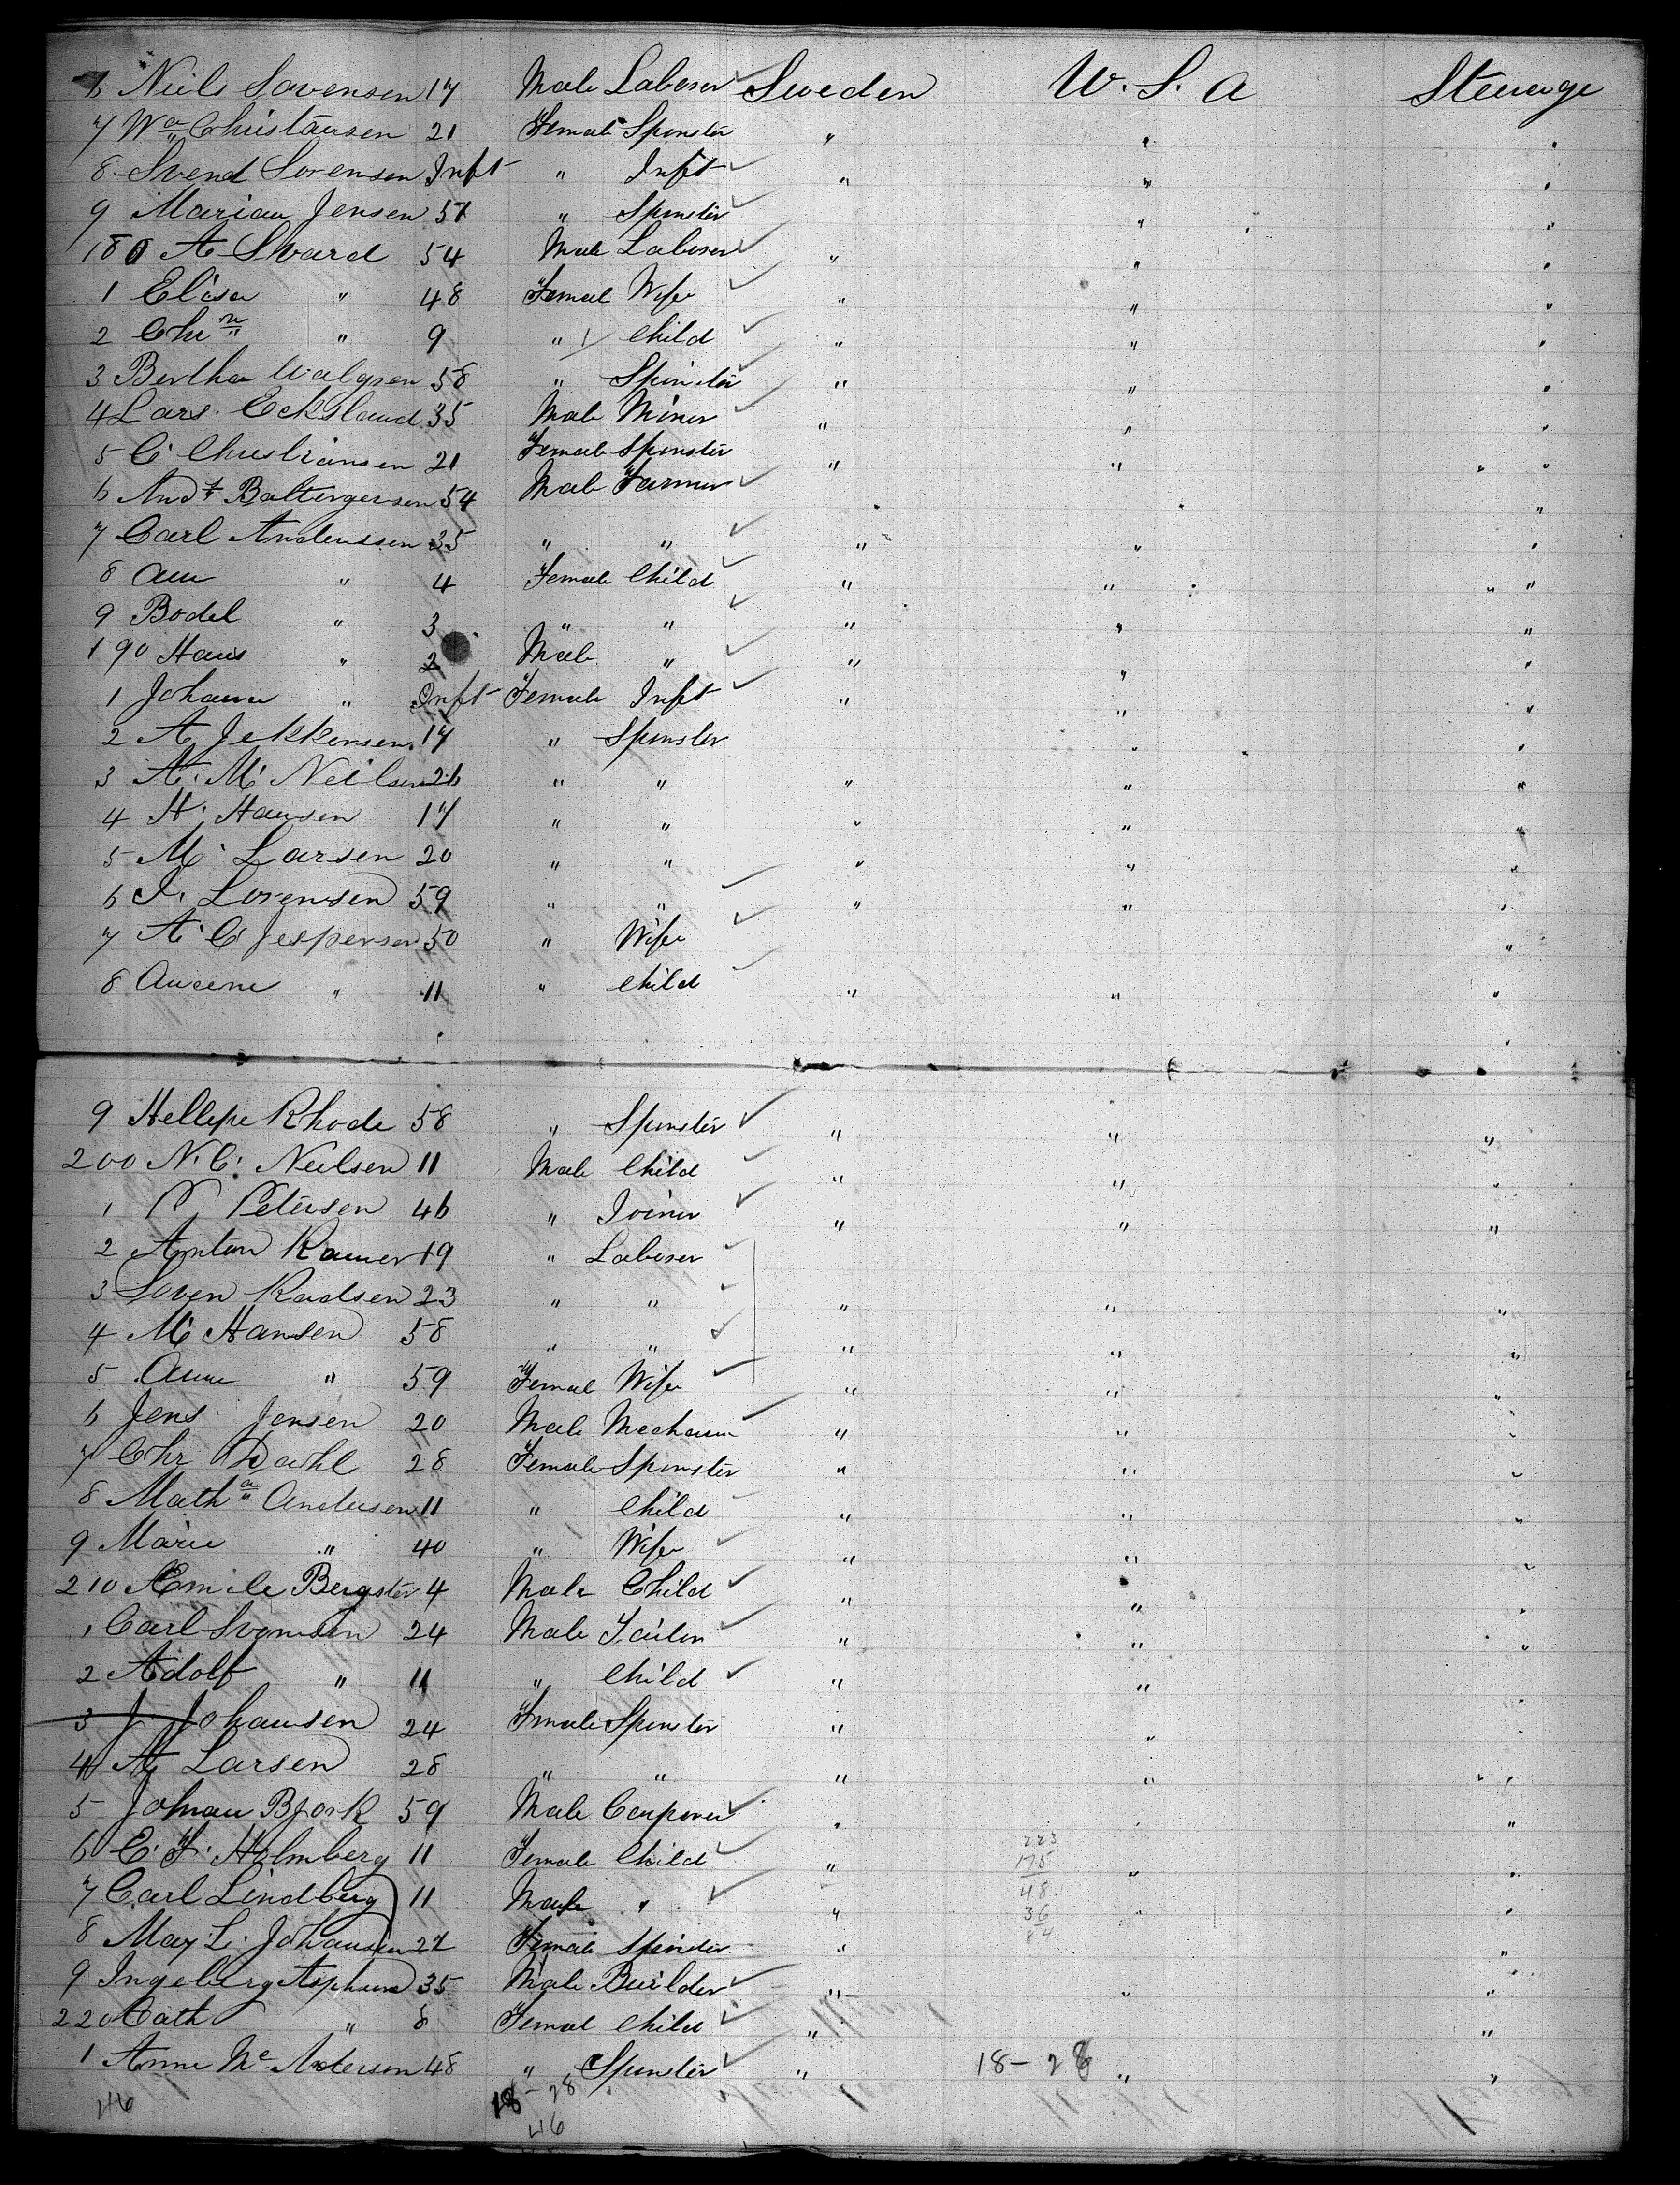 6 Niels Sorensen 17 Male Laborer Sweden U.S. A Steerage
7 Wa Christiansen 21 Female Spinster " " "
8 Svend Sorensen Inft " Inft " " "
9 Marian Jensen 51 " Spinster " "
180 A Svard 54 Male Laborer " " "
1 Elisa " 48 Femal Wife " " "
2 Chrn " 9 " Child " " "
3 Bertha Walgren 58 " Spinster " " "
4 Lars. Eckslaud 35 Male Miner " " "
5 C Christiansen 21 Female Spinster " " "
6 Andr 54 Male Farmer " " "
7 Carl Anderssen 35 " " " " "
8 Ann " 4 Female Child " " "
9 Bodel " 3 " " " " "
190 Hans " 2 Male " " " "
1 Johana " Inft Female Inft " " "
2 A Jekkensen 17 " Spinster " "
3 A. M. Neilsen 26 " " " " "
4 H. Hansen 17 " " " " "
5 M. Larsen 20 " " " " "
6 I. Lorensen 59 " " " " "
7 A C Jespersen 50 " Wife "
8 " 11 " Child " " "
9 Rhode 58 " Spinster " " "
200 N. C. Neilsen 11 Male Child " " "
1 P Petersen 46 " Joiner " " "
2 Anton 19 " Laborer
3 Soren Radsen 23 " " " " "
4 M Hansen 58 " " " " "
5 Anne " 59 Femal Wife " " "
6 Jens Jensen 20 Male Mechanic " " "
7 Chr Dahl 28 Female Spinster " " "
8 Matha Andersen 11 " Child " " "
9 Marie " 40 " Wife " " "
210 Emile Bergster 4 Male Child " " "
1 Carl Svensden 24 Male Tailor " " "
2 Adolf " 11 " Child " "
3 J. Johansen 24 Female Spinster " " "
4 A Larsen 28 " " " " "
5 Johan Bjork 59 Male " " "
6 E. F. Holmberg 11 Female Child " " "
223
175
48.
36
84
7 Carl Lindberg 11 Male " " " "
8 May L. Johansen 22 Female Spinster " "
9 Ingeburg 35 Male Builder " " "
220 Cath " 8 Femal Child " "
1 Anne Me Anderson 48 " Spinster " 18-28 " "
46 18-28
46